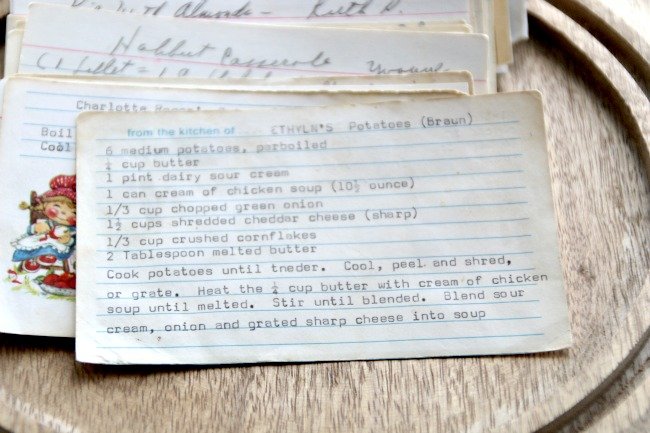 Almonds - Ruth C.
Halibut Casserole
(1 fillet =
Charlotte
Boil
Cool
from the kitchen of ETHYLN'S Potatoes (Braun)
6 medium potatoes, parboiled
¼ cup butter
1 pint dairy sour cream
1 can cream of chicken soup (10½ ounce)
1/3 cup chopped green onion
1½ cups shredded cheddar cheese (sharp)
1/3 cup crushed cornflakes
2 Tablespoon melted butter
Cook potatoes until tneder. Cool, peel and shred,
or grate. Heat the ¼ cup butter with cream of chicken
soup until melted. Stir until blended. Blend sour
cream, onion and grated sharp cheese into soup